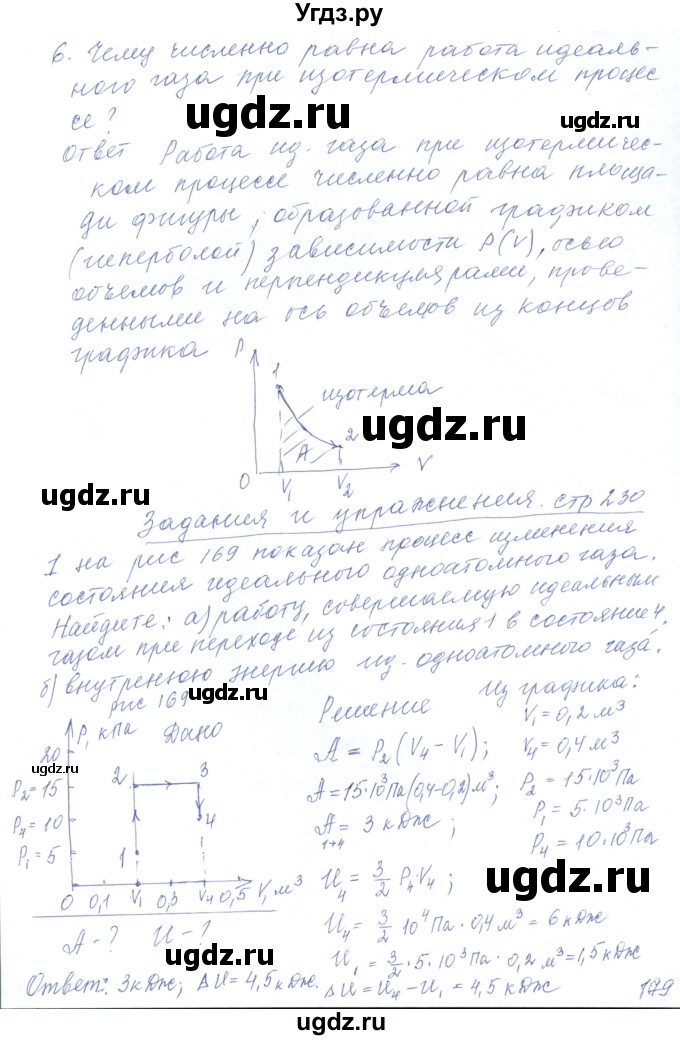 Угдз.ру
6. Чему численно равна работа идеаль-
ного газа при изотермическом процес
се?
ugdz.ru
ugdz.ru
Ответ Работа ид. газа при изотермичес-
ком процессе численно равна площа-
ди фигуры, образованной графиком
(гиперболой) зависимости P(V), осью
объемов и перпендикулярами, прове-
денными на ось объемов из концов
графика
ugdz.ru
P
1
изотерма
ugdz.ru
2
A
0 V₁ V₂ V
ugdz.ru
Задания и упражнения. стр 230
1 на рис 169 показан процесс изменения
состояния идеального одноатомного газа.
Найдите: а) работу, совершаемую идеальным
газом при переходе из состояния 1 в состояние 4.
б) внутреннюю энергию ид. одноатомного газа.
ugdz.ru
рис 169
P, кПа Дано
20
ugdz.ru
P₂ = 15
P₄ = 10
P₁ = 5
2 3
4
1
0 0,1 V₁ 0,3 V₄ 0,5 V, м³
A - ? U - ?
Решение
A = P₂(V₄ - V₁);
A = 15·10³Па(0,4-0,2)м³;
A = 3 кДж;
1→4
ugdz.ru
U₄ = 3/2 P₄·V₄;
U₄ = 3/2 10⁴Па·0,4м³ = 6кДж
U₁ = 3/2·5·10³Па·0,2м³ = 1,5кДж
ΔU = U₄ - U₁ = 4,5кДж
Из графика:
V₁ = 0,2м³
V₄ = 0,4м³
P₂ = 15·10³Па
P₁ = 5·10³Па
P₄ = 10·10³Па
ugdz.ru
Ответ: 3кДж; ΔU = 4,5кДж.
179
ugdz.ru